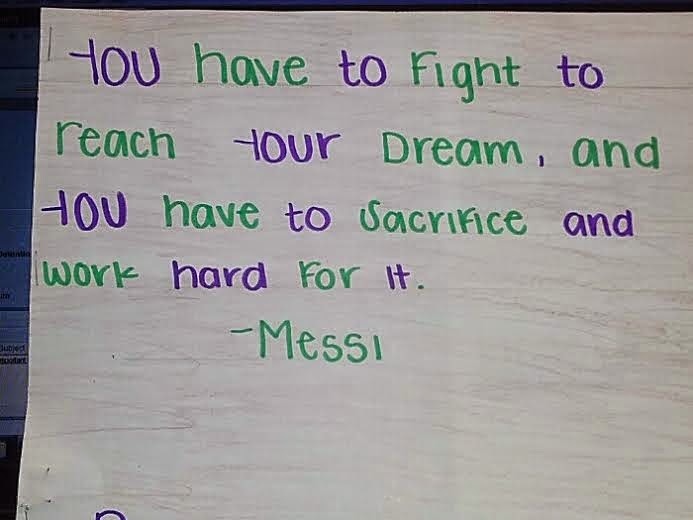 You have to Fight to
reach your Dream, and
you have to Sacrifice and
work hard For it.
-Messi
Subject